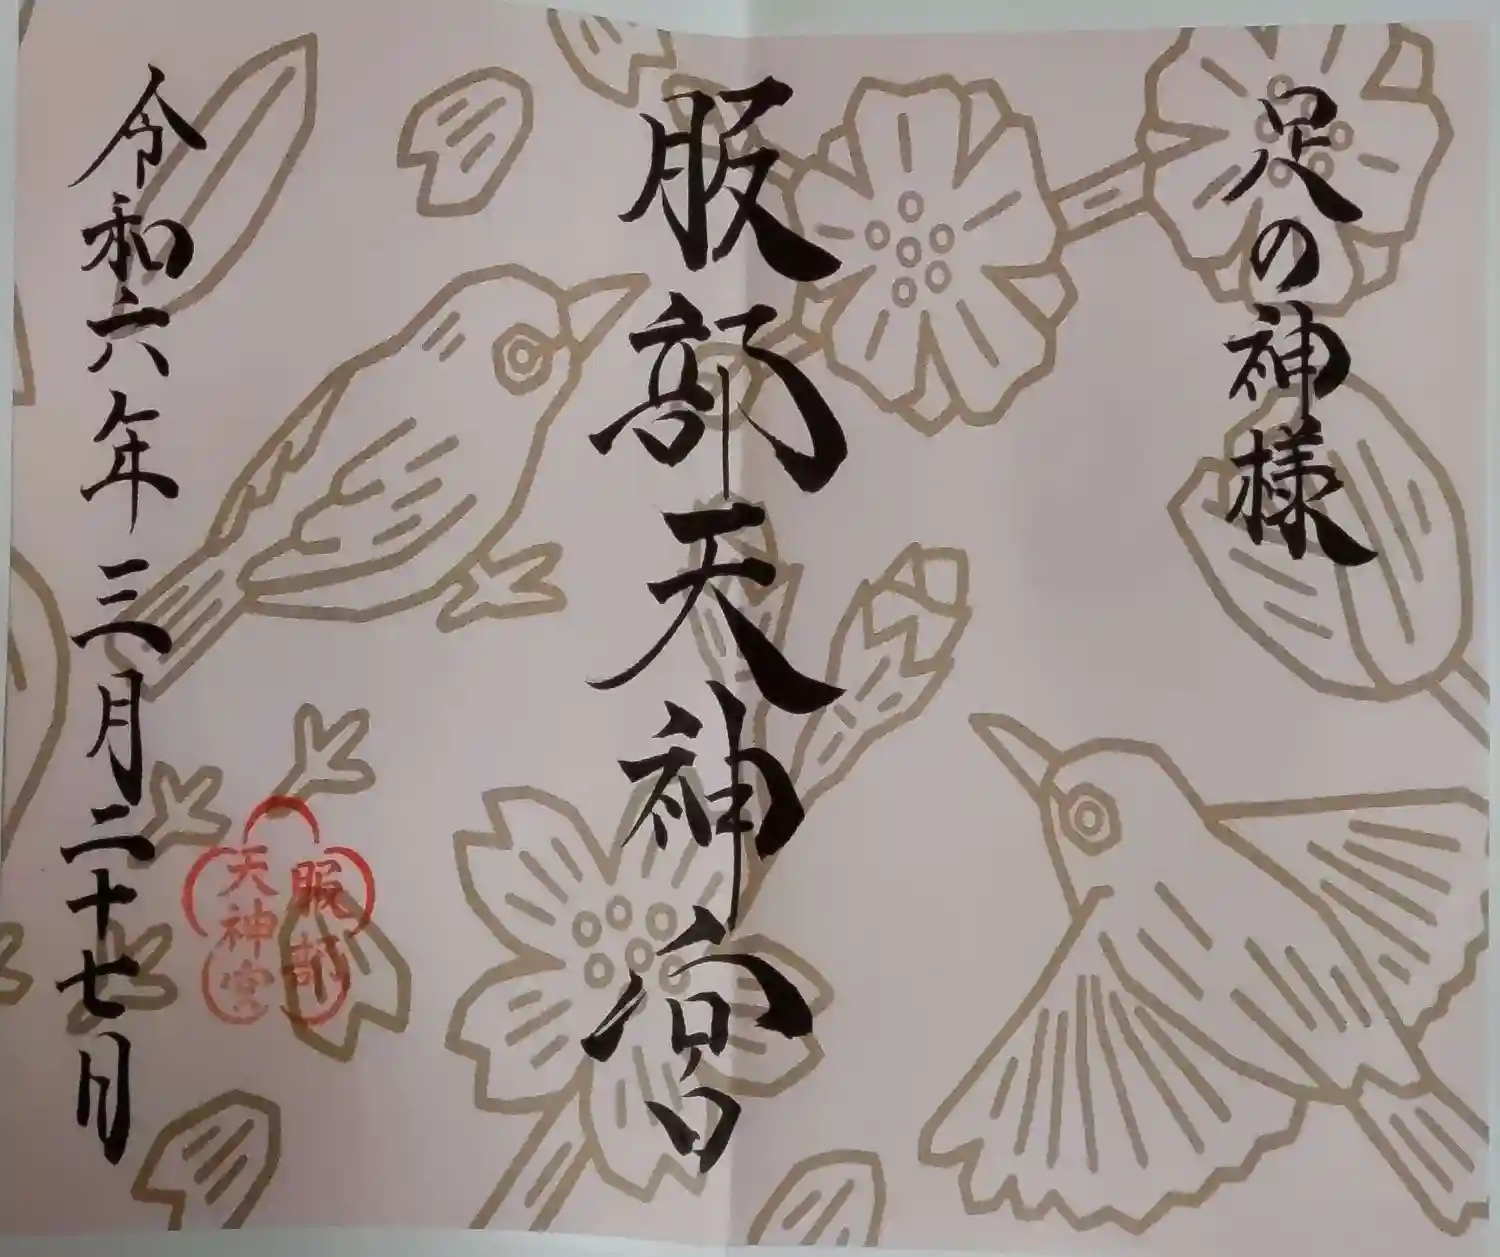 足の神様
服部天神宮
令和六年三月二十七日
服部
天神宮